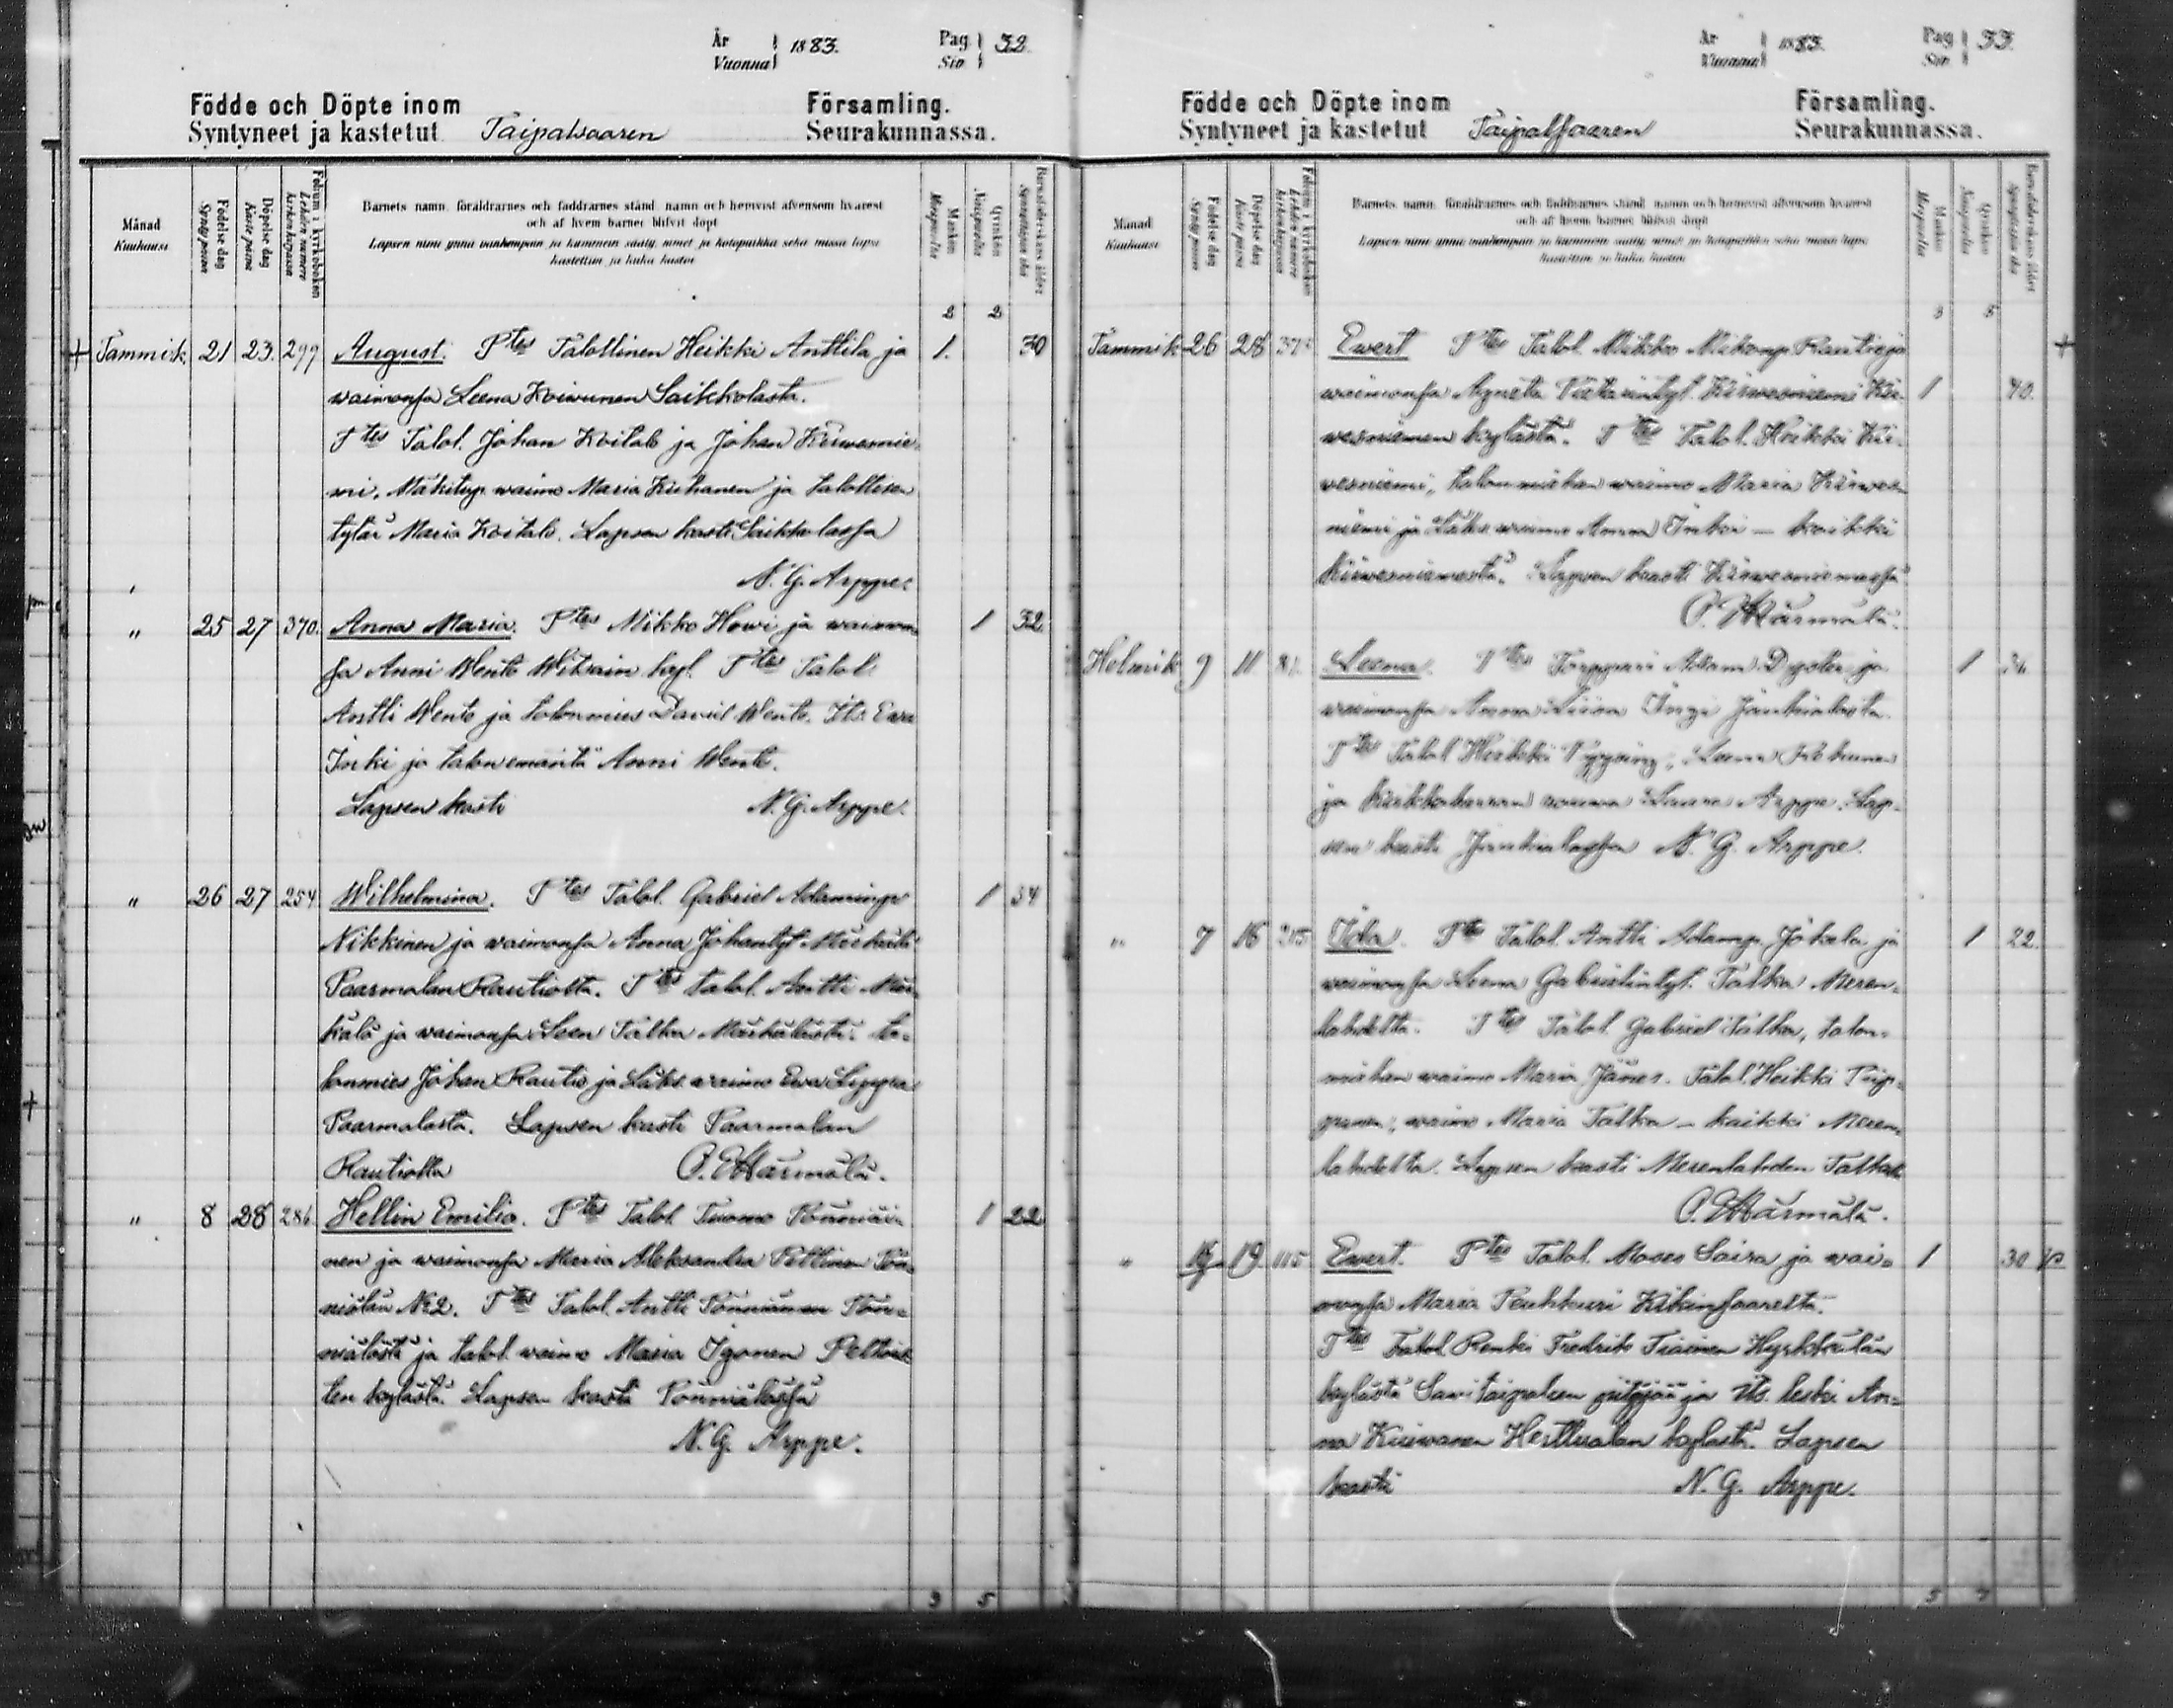 År 1883. Pag. 32
Vuonna Siv.
Födde och Döpte inom Församling.
Syntyneet ja kastetut Taipalsaaren Seurakunnassa.
Månad Kuukausi
Födelse dag Syntypäivä
Döpelse dag Kaste päivä
Folium i kyrkoboken Lehden numero kirkonkirjassa
Barnets namn, föräldrarnes och faddrarnes stånd, namn och hemvist äfvensom hvarest
och af hvem barnet blifvit döpt
Lapsen nimi ynnä vanhempain ja kummein sääty, nimet ja kotopaikka sekä missä lapsi
kastettiin ja kuka kastoi
Mankön Miespuolia
Qvinkön Naispuolia
Barnaföderskans ålder Synnyttäjän ikä
2 2
+ Tammik. 21 23. 299 August. Ptes Talollinen Heikki Anttila ja 1. 30
waimonsa Leena Koiwunen Saikkolasta.
Ttes Talol. Johan Koitalo ja Johan Kirwesnie-
mi, Mäkitup. waimo Maria Kukanen ja talollisen
tytär Maria Koitalo. Lapsen kasti Saikkolassa
N. G. Arppe.
" 25 27 370. Anna Maria. Ptes Mikko Howi ja waimon- 1 32
sa Anni Wento Witsain kyl. Ttes Talol.
Antti Wento ja talonmies Daniel Wento. Its. Ewa
Inki ja talonemäntä Anni Wento.
Lapsen kasti N. G. Arppe.
" 26 27 254 Wilhelmina. Ptes Talol. Gabriel Adaminp. 1 34
Nikkinen ja waimonsa Anna Johantyt.
Paarmalan Rautiolta. Ttes talol. Antti
ja waimonsa Leena Talka
lonmies Johan Rautio ja Läks. waimo Ewa
Paarmalasta. Lapsen kasti Paarmalan
Rautiolla P. E. Härmälä.
" 8 28 286 Hellin Emilia. Ptes Talol. Tuomo Pönniäi- 1 22
nen ja waimonsa Maria Aleksandra Peltinen Pön-
niälän No 2. Ttes Talol. Antti Pönniäinen Pön-
niälästä ja talol. waimo Maria Igonen
ten kylästä. Lapsen kasti Pönniälässä
N. G. Arppe.
3 5
År 1883. Pag. 33.
Vuonna Siv.
Födde och Döpte inom Församling.
Syntyneet ja kastetut Taipalsaaren Seurakunnassa.
Månad Kuukausi
Födelse dag Syntypäivä
Döpelse dag Kaste päivä
Folium i kyrkoboken Lehden numero kirkonkirjassa
Barnets namn, föräldrarnes och faddrarnes stånd, namn och hemvist äfvensom hvarest
och af hvem barnet blifvit döpt
Lapsen nimi ynnä vanhempain ja kummein sääty, nimet ja kotopaikka sekä missä lapsi
kastettiin ja kuka kastoi
Mankön Miespuolia
Qvinkön Naispuolia
Barnaföderskans ålder Synnyttäjän ikä
3 5
Tammik 26 28 Ewert Ptes Talol. Mikko Mikonp. Rautio ja +
waimonsa Agneta Kirwesniemi Kir- 1 40.
wesniemen kylästä. Ttes Talol. Heikki Kir-
wesniemi, talonmiehen waimo Maria Kirwes-
niemi ja Läks. waimo Anna Inki – kaikki
Kirwesniemestä. Lapsen kasti Kirwesniemessä
P. E. Härmälä.
Helmik 9 11 Leena. Ptes Torppari Adam ja 1
waimonsa Anna Liisa Ingi Jauhialasta.
Ttes Talol. Heikki Leena
ja kirkkoherran rouwa Arppe. Lap-
sen kasti Jauhialassa N. G. Arppe.
" 7 16 215 Ida. Ptes Talol. Antti Adamp. Jokela ja 1 22.
waimonsa Leena Gabrielintyt. Talka Meren-
lahdelta. Ttes Talol. Gabriel Talka, talon-
miehen waimo Maria Jänes. Talol. Heikki Piip-
ponen, waimo Maria Talka – kaikki Meren-
lahdelta. Lapsen kasti Merenlahden Talkalla
P. E. Härmälä.
" 19 115 Ewert. Ptes Talol. Moses Saira ja wai- 1 30
monsa Maria Peuhkuri Kilkinsaarelta.
Ttes Talol. Renki Fredrik Tiainen Hyrkkälän
kylästä Sawitaipaleen pitäjää ja its. leski An-
na Kuiwanen Herttualan kylästä. Lapsen
kasti N. G. Arppe.
5 7